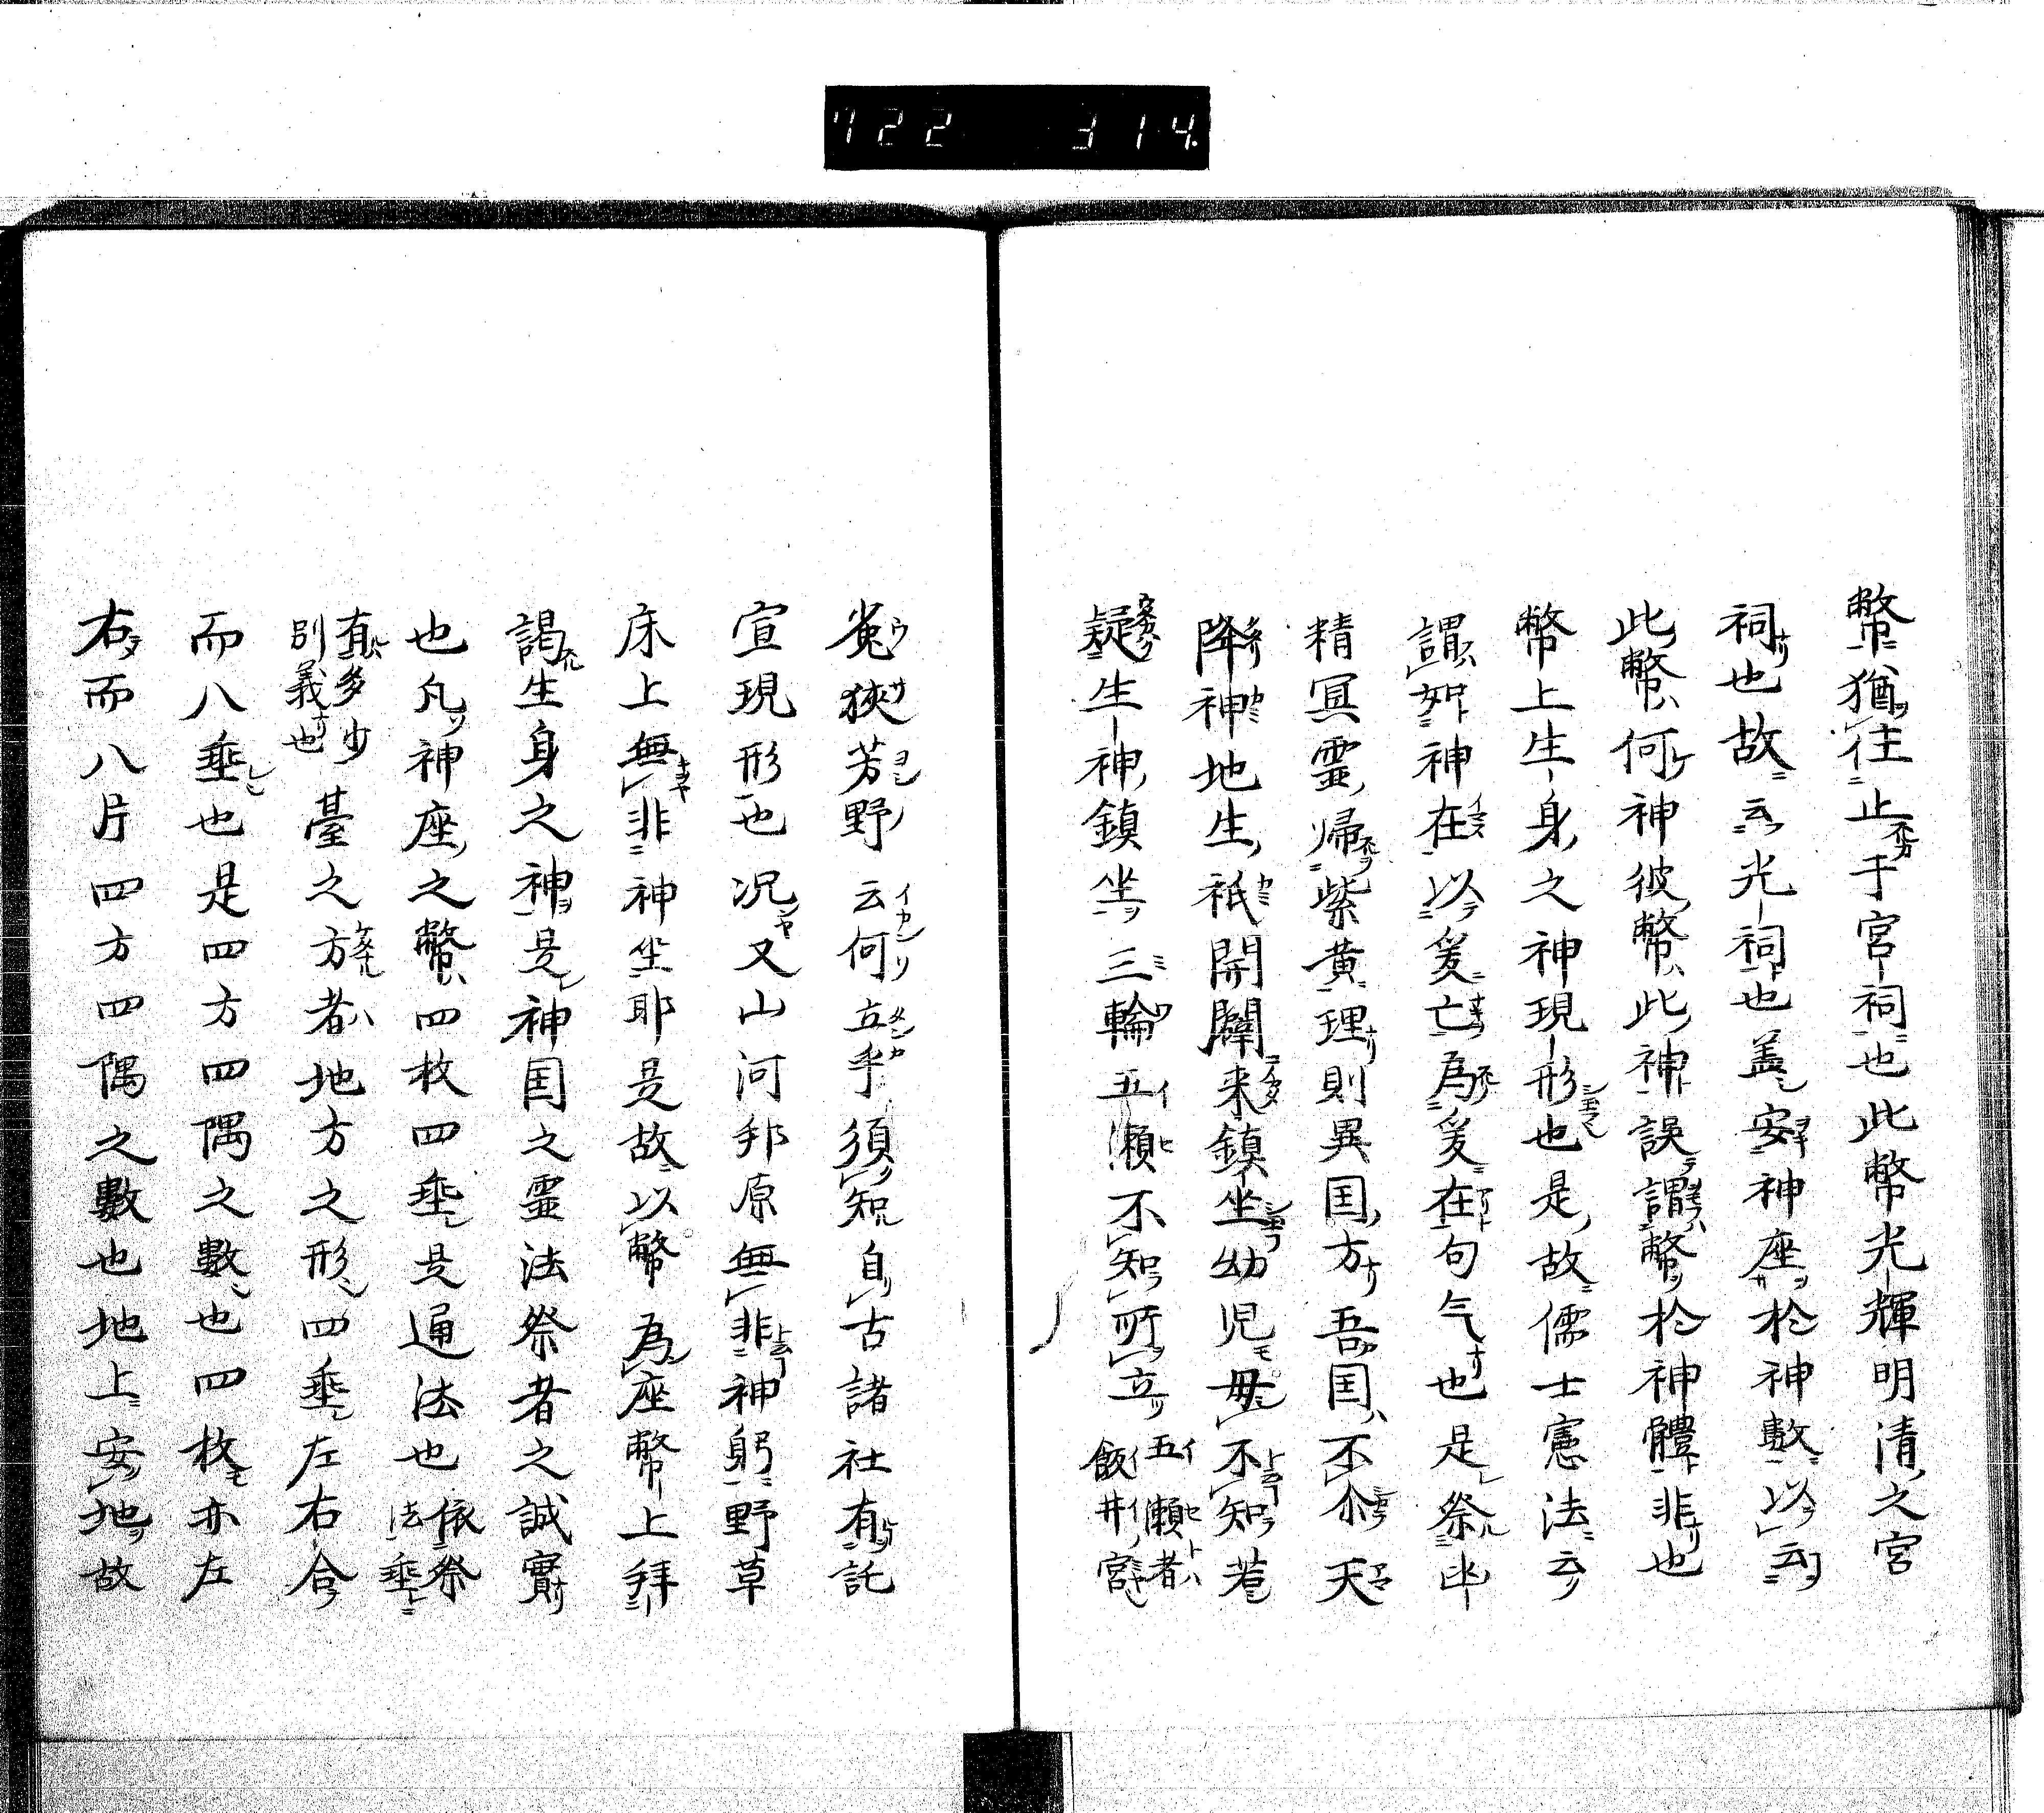 722 314.
幣猶往止于宮祠也此幣光輝明清之宮
祠也故云光祠也盖安神座於神數以云
此幣何神彼幣此神誤謂幣於神體非也
幣上生身之神現形也是故儒士憲法云
謂如神在以爰亡為爰在句气也是祭
精冥霊帰紫黄理則異国方吾国不尒天
降神地生祇開闢来鎮坐幼児毋不知若
疑生神鎮坐三輪五瀬不知所立五瀬者飯井宮
菟狹芳野云何立乎須知自古諸社有託
宣現形也况又山河邦原無非神躬野草
床上無非神坐耶是故以幣為座幣上拜
謁生身之神是神国之霊法祭者之誠實
也凡神座之幣四枚四垂是通法也依祭法垂
有多少別義也臺之方者地方之形四垂左右合
而八垂也是四方四隅之數也四枚亦左
右而八片四方四隅之數也地上安地故